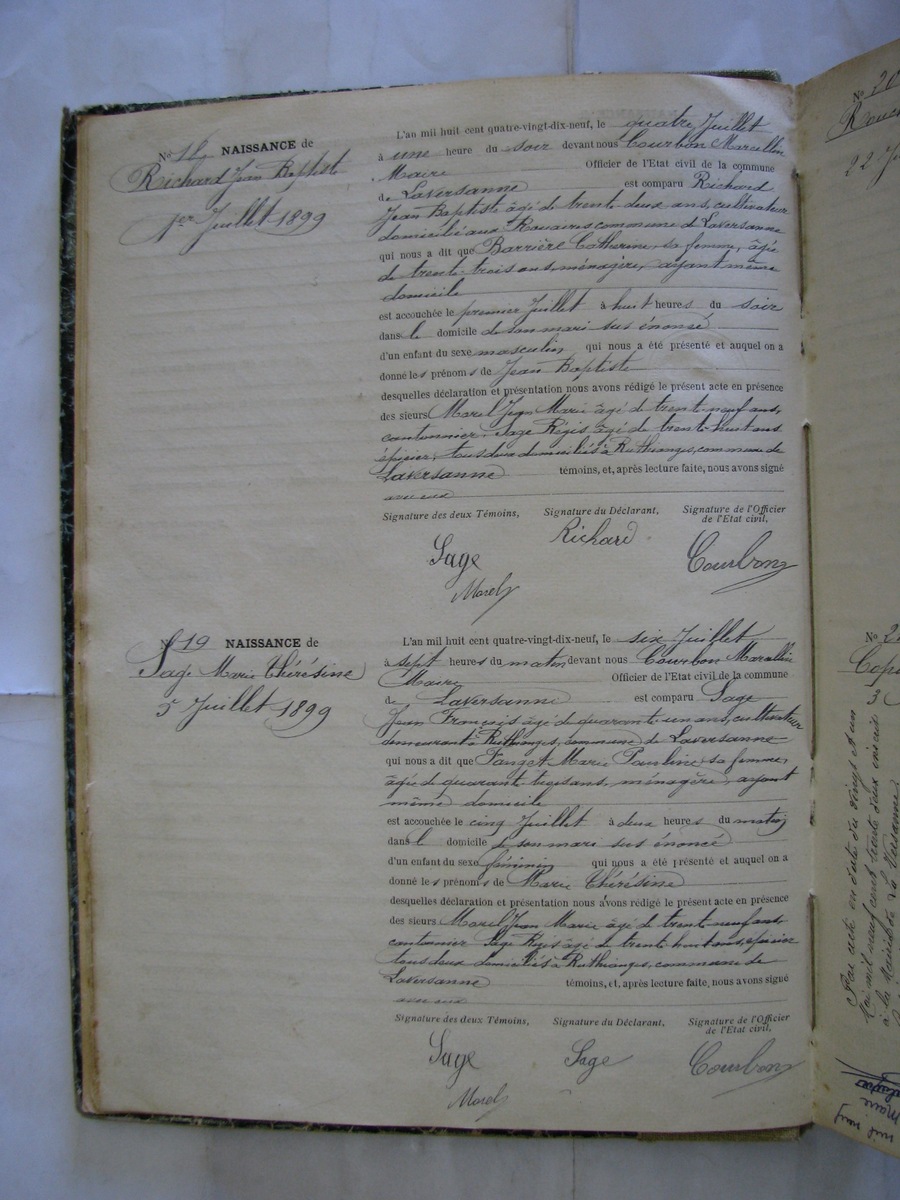 No 18 NAISSANCE de
Richard Jean Baptiste
1er Juillet 1899
L'an mil huit cent quatre-vingt-dix-neuf, le quatre Juillet
à une heure du soir devant nous Courbon Marcellin
Maire Officier de l'Etat civil de la commune
de Laversanne est comparu Richard
Jean Baptiste âgé de trente deux ans, cultivateur
domicilié aux commune de Laversanne
qui nous a dit que Barrière Catherine, sa femme, âgée
de trente trois ans, ménagère, ayant même
domicile
est accouchée le premier Juillet à huit heures du soir
dans le domicile de son mari sus énoncé
d'un enfant du sexe masculin qui nous a été présenté et auquel on a
donné les prénoms de Jean Baptiste
desquelles déclaration et présentation nous avons rédigé le présent acte en présence
des sieurs Morel Jean Marie âgé de trente-neuf ans,
cantonnier, Sage Régis âgé de trente-huit ans
épicier, tous deux domiciliés à Ruthianges, commune de
Laversanne témoins, et, après lecture faite, nous avons signé
avec eux
Signature des deux Témoins, Signature du Déclarant, Signature de l'Officier
de l'Etat civil,
Sage Richard Courbon
Morel
No 19 NAISSANCE de
Sage Marie Thérésine
5 Juillet 1899
L'an mil huit cent quatre-vingt-dix-neuf, le six Juillet
à sept heures du matin devant nous Courbon Marcellin
Maire Officier de l'Etat civil de la commune
de Laversanne est comparu Sage
Jean François âgé de quarante un ans, cultivateur
demeurant à Ruthianges, commune de Laversanne
qui nous a dit que Fanget Marie Pauline sa femme,
âgée de quarante trois ans, ménagère, ayant
même domicile
est accouchée le cinq Juillet à deux heures du matin
dans l domicile de son mari sus énoncé
d'un enfant du sexe féminin qui nous a été présenté et auquel on a
donné les prénoms de Marie Thérésine
desquelles déclaration et présentation nous avons rédigé le présent acte en présence
des sieurs Morel Jean Marie âgé de trente neuf ans,
cantonnier Sage Régis âgé de trente huit ans, épicier
tous deux domiciliés à Ruthianges, commune de
Laversanne témoins, et, après lecture faite, nous avons signé
avec eux
Signature des deux Témoins, Signature du Déclarant, Signature de l'Officier
de l'Etat civil,
Sage Sage Courbon
Morel
No 20
22 Ju
No 2
3
Par acte en date du vingt et un
Mai mil neuf cent trente deux inscrit
à la Mairie de La Versanne
Marie
mil neuf